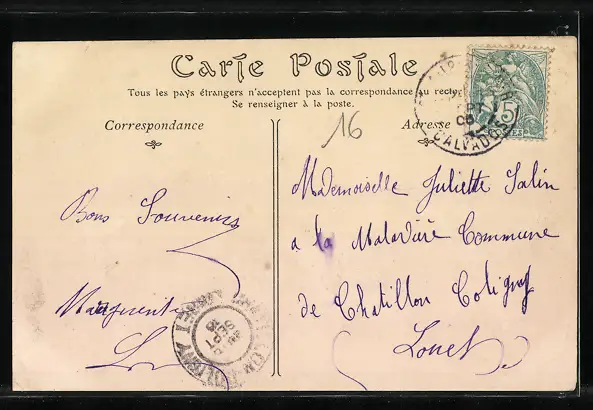 Carte Postale
Tous les pays étrangers n'acceptent pas la correspondance au recto
Se renseigner à la poste.
Correspondance
Adresse
16
5
CALVADOS
Bons Souvenirs
Marguerite
Mademoiselle Juliette Salin
a la Maladière Commune
de Chatillon Coligny
Loiret